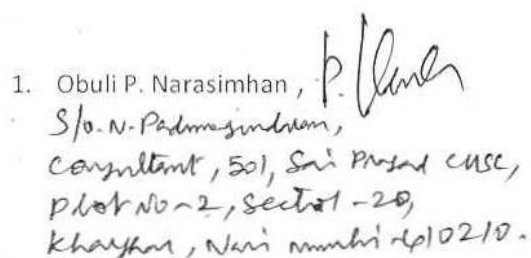 1. Obuli P. Narasimhan,
S/o. N.
Consultant, 501, Sai Prasad CHSC,
Plot No-2, Sector-20,
Kharghar, Navi Mumbai-410210.